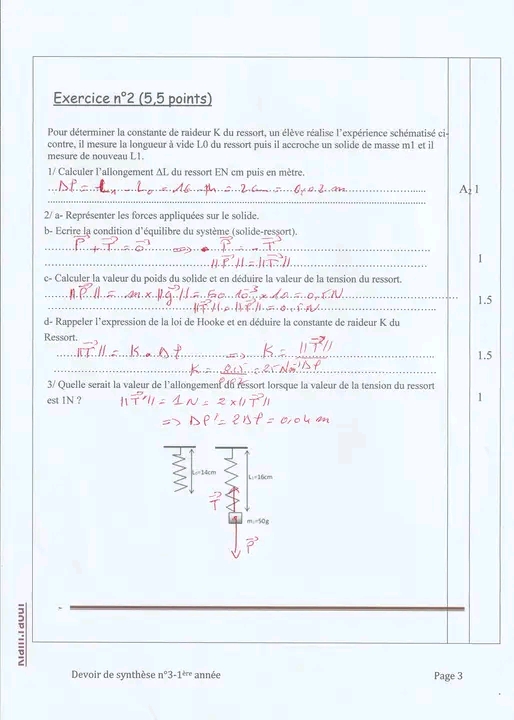 Exercice n°2 (5,5 points)
Pour déterminer la constante de raideur K du ressort, un élève réalise l'expérience schématisé ci-
contre, il mesure la longueur à vide L0 du ressort puis il accroche un solide de masse m1 et il
mesure de nouveau L1.
1/ Calculer l'allongement ΔL du ressort EN cm puis en mètre.
Δl = L₁ - L₀ = 16 - 14 = 2 cm = 0,02 m
A₂ 1
2/ a- Représenter les forces appliquées sur le solide.
b- Ecrire la condition d'équilibre du système (solide-ressort).
P + T = 0 ⟺ P = - T
||P|| = ||T||
1
c- Calculer la valeur du poids du solide et en déduire la valeur de la tension du ressort.
||P|| = m x ||g|| = 50 . 10⁻³ x 10 = 0,5 N
||T|| = ||P|| = 0,5 N
1.5
d- Rappeler l'expression de la loi de Hooke et en déduire la constante de raideur K du
Ressort.
||T|| = K . Δl ⟹ K = ||T|| / Δl
K = 0,5 / 0,02 = 25 N.m⁻¹
1.5
3/ Quelle serait la valeur de l'allongement du ressort lorsque la valeur de la tension du ressort
est 1N ? ||T'|| = 1 N = 2 x ||T||
1
⟹ Δl' = 2Δl = 0,04 m
L₀=14cm
L₁=16cm
T
m₁=50g
P
Devoir de synthèse n°3-1ère année Page 3